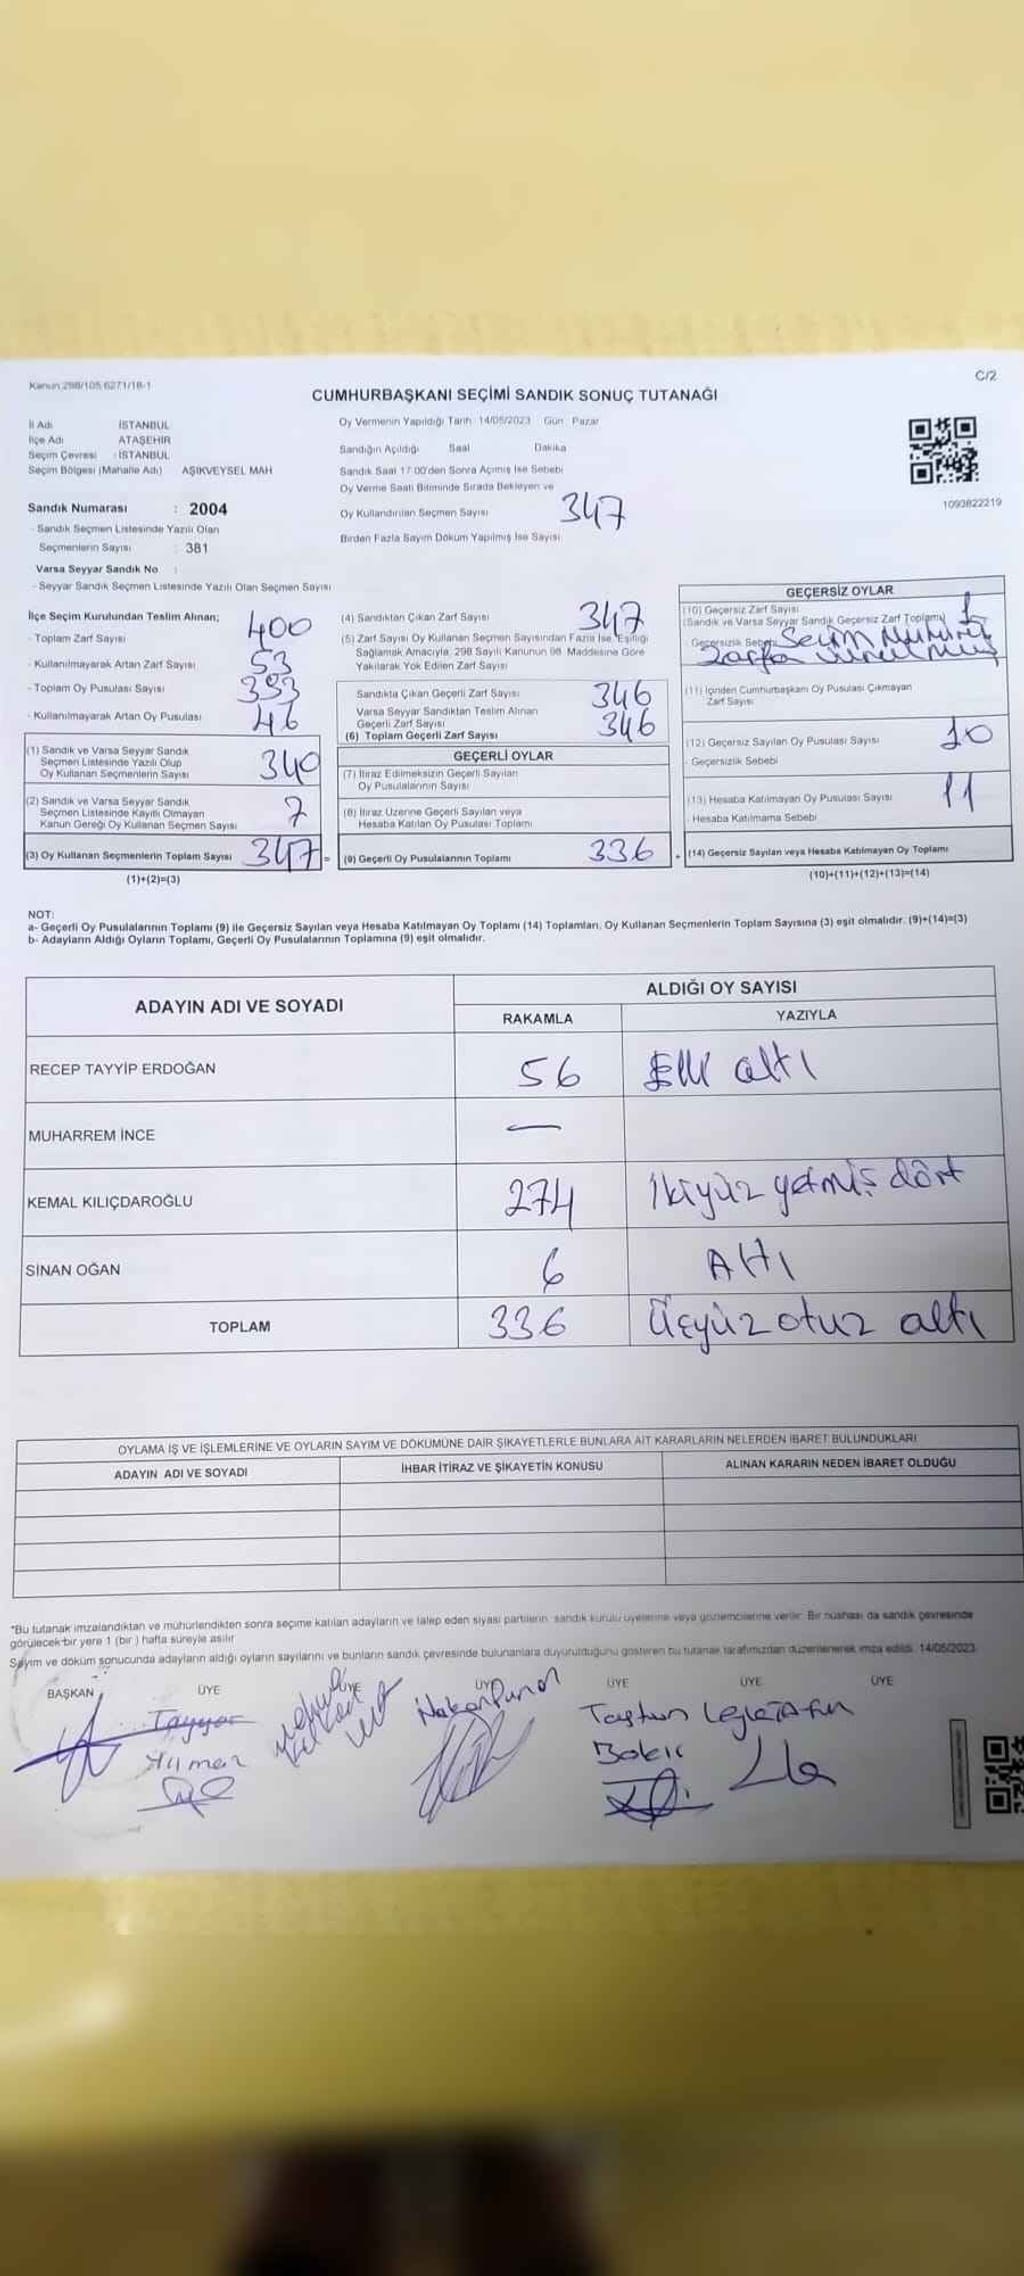 Kanun:298/105,6271/18-1
C/2
CUMHURBAŞKANI SEÇİMİ SANDIK SONUÇ TUTANAĞI
İl Adı İSTANBUL
İlçe Adı ATAŞEHİR
Seçim Çevresi : İSTANBUL
Seçim Bölgesi (Mahalle Adı) AŞIKVEYSEL MAH
Sandık Numarası : 2004
- Sandık Seçmen Listesinde Yazılı Olan
Seçmenlerin Sayısı : 381
Varsa Seyyar Sandık No :
- Seyyar Sandık Seçmen Listesinde Yazılı Olan Seçmen Sayısı
Oy Vermenin Yapıldığı Tarih : 14/05/2023 Gün : Pazar
Sandığın Açıldığı Saat Dakika
Sandık Saat 17:00'den Sonra Açılmış İse Sebebi
Oy Verme Saati Bitiminde Sırada Bekleyen ve
Oy Kullandırılan Seçmen Sayısı 347
Birden Fazla Sayım Döküm Yapılmış İse Sayısı
1093822219
İlçe Seçim Kurulundan Teslim Alınan;
- Toplam Zarf Sayısı 400
- Kullanılmayarak Artan Zarf Sayısı 53
- Toplam Oy Pusulası Sayısı 393
- Kullanılmayarak Artan Oy Pusulası 46
(1) Sandık ve Varsa Seyyar Sandık
Seçmen Listesinde Yazılı Olup
Oy Kullanan Seçmenlerin Sayısı 340
(2) Sandık ve Varsa Seyyar Sandık
Seçmen Listesinde Kayıtlı Olmayan
Kanun Gereği Oy Kullanan Seçmen Sayısı 7
(3) Oy Kullanan Seçmenlerin Toplam Sayısı 347 =
(1)+(2)=(3)
(4) Sandıktan Çıkan Zarf Sayısı 347
(5) Zarf Sayısı Oy Kullanan Seçmen Sayısından Fazla İse, Eşitliği
Sağlamak Amacıyla, 298 Sayılı Kanunun 98. Maddesine Göre
Yakılarak Yok Edilen Zarf Sayısı
Sandıkta Çıkan Geçerli Zarf Sayısı 346
Varsa Seyyar Sandıktan Teslim Alınan
Geçerli Zarf Sayısı
(6) Toplam Geçerli Zarf Sayısı 346
GEÇERLİ OYLAR
(7) İtiraz Edilmeksizin Geçerli Sayılan
Oy Pusulalarının Sayısı
(8) İtiraz Üzerine Geçerli Sayılan veya
Hesaba Katılan Oy Pusulası Toplamı
(9) Geçerli Oy Pusulalarının Toplamı 336 +
GEÇERSİZ OYLAR
(10) Geçersiz Zarf Sayısı
(Sandık ve Varsa Seyyar Sandık Geçersiz Zarf Toplamı) 1
- Geçersizlik Sebebi Seçim Mühürü
zarfa vurulmuş
(11) İçinden Cumhurbaşkanı Oy Pusulası Çıkmayan
Zarf Sayısı
(12) Geçersiz Sayılan Oy Pusulası Sayısı 10
- Geçersizlik Sebebi
(13) Hesaba Katılmayan Oy Pusulası Sayısı 11
- Hesaba Katılmama Sebebi
(14) Geçersiz Sayılan veya Hesaba Katılmayan Oy Toplamı
(10)+(11)+(12)+(13)=(14)
NOT:
a- Geçerli Oy Pusulalarının Toplamı (9) ile Geçersiz Sayılan veya Hesaba Katılmayan Oy Toplamı (14) Toplamları, Oy Kullanan Seçmenlerin Toplam Sayısına (3) eşit olmalıdır. (9)+(14)=(3)
b- Adayların Aldığı Oyların Toplamı, Geçerli Oy Pusulalarının Toplamına (9) eşit olmalıdır.
ADAYIN ADI VE SOYADI ALDIĞI OY SAYISI
RAKAMLA YAZIYLA
RECEP TAYYİP ERDOĞAN 56 Elli altı
MUHARREM İNCE —
KEMAL KILIÇDAROĞLU 274 İkiyüz yetmiş dört
SİNAN OĞAN 6 Altı
TOPLAM 336 Üçyüz otuz altı
OYLAMA İŞ VE İŞLEMLERİNE VE OYLARIN SAYIM VE DÖKÜMÜNE DAİR ŞİKAYETLERLE BUNLARA AİT KARARLARIN NELERDEN İBARET BULUNDUKLARI
ADAYIN ADI VE SOYADI İHBAR İTİRAZ VE ŞİKAYETİN KONUSU ALINAN KARARIN NEDEN İBARET OLDUĞU
*Bu tutanak imzalandıktan ve mühürlendikten sonra seçime katılan adayların ve talep eden siyasi partilerin, sandık kurulu üyelerine veya gözlemcilerine verilir. Bir nüshası da sandık çevresinde
görülecek bir yere 1 (bir ) hafta süreyle asılır
Sayım ve döküm sonucunda adayların aldığı oyların sayılarını ve bunların sandık çevresinde bulunanlara duyurulduğunu gösteren bu tutanak tarafımızdan düzenlenerek imza edildi. 14/05/2023
BAŞKAN ÜYE ÜYE ÜYE ÜYE ÜYE ÜYE
Tayyar
Hakan
Bakır